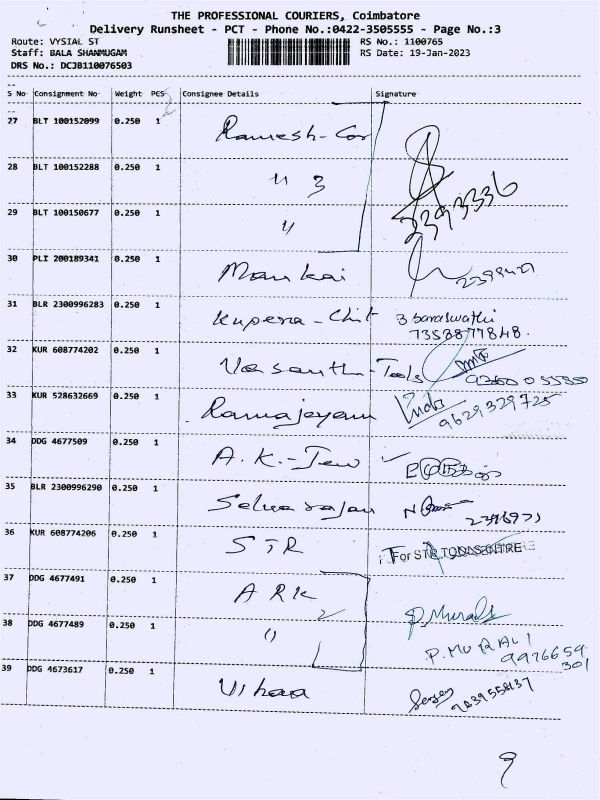 THE PROFESSIONAL COURIERS, Coimbatore
Delivery Runsheet - PCT - Phone No.:0422-3505555 - Page No.:3
Route: VYSIAL ST RS No.: 1100765
Staff: BALA SHANMUGAM RS Date: 19-Jan-2023
DRS No.: DCJB110076503
S No Consignment No Weight PCS Consignee Details Signature
27 BLT 100152099 0.250 1 Ramesh-Cor
28 BLT 100152288 0.250 1 " 3
2393336
29 BLT 100150677 0.250 1 "
30 PLI 200189341 0.250 1 Mankai
31 BLR 2300996283 0.250 1 Kupera-Chit 3 Saraswathi
7358877848.
32 KUR 608774202 0.250 1 Vasantha-Tools
33 KUR 528632669 0.250 1 Ramajeyam
9629329725
34 DDG 4677509 0.250 1 A.K.-Jew
35 BLR 2300996290 0.250 1 Selvarajan
36 KUR 608774206 0.250 1 STR For STR TOOLS CENTRE
37 DDG 4677491 0.250 1 ARK P.Murali
38 DDG 4677489 0.250 1 " P.MURALI
9976659
301
39 DDG 4673617 0.250 1 Vihaa
9